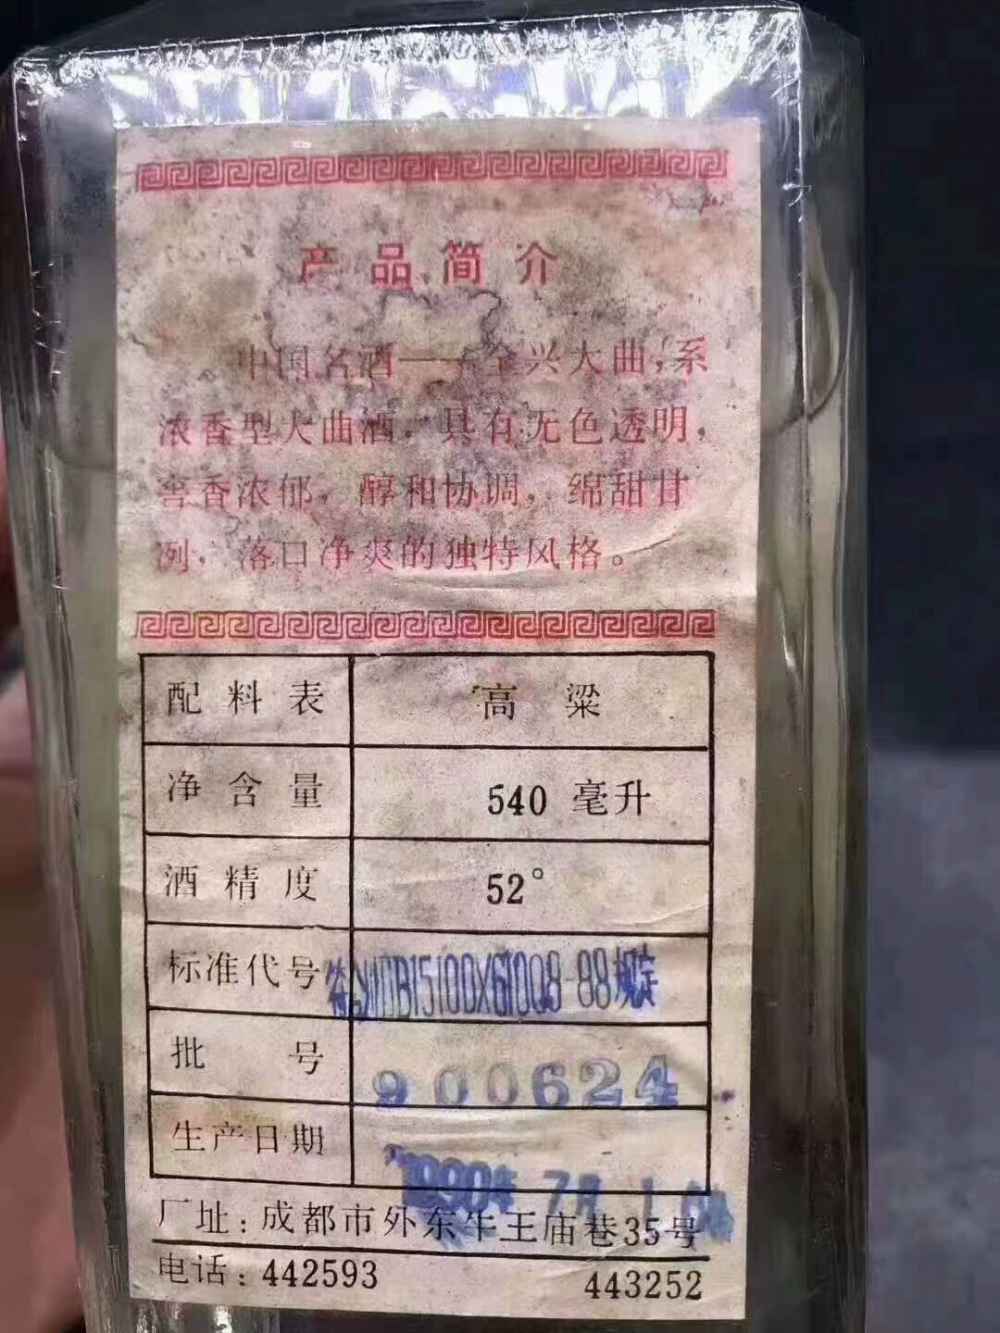 产品简介
中国名酒——全兴大曲,系
浓香型大曲酒,具有无色透明,
窖香浓郁,醇和协调,绵甜甘
冽,落口净爽的独特风格。
配料表 高粱
净含量 540 毫升
酒精度 52°
标准代号 符 DB15100X61008-88规定
批号 900624
生产日期 1990年 7月
厂址:成都市外东牛王庙巷35号
电话:442593 443252